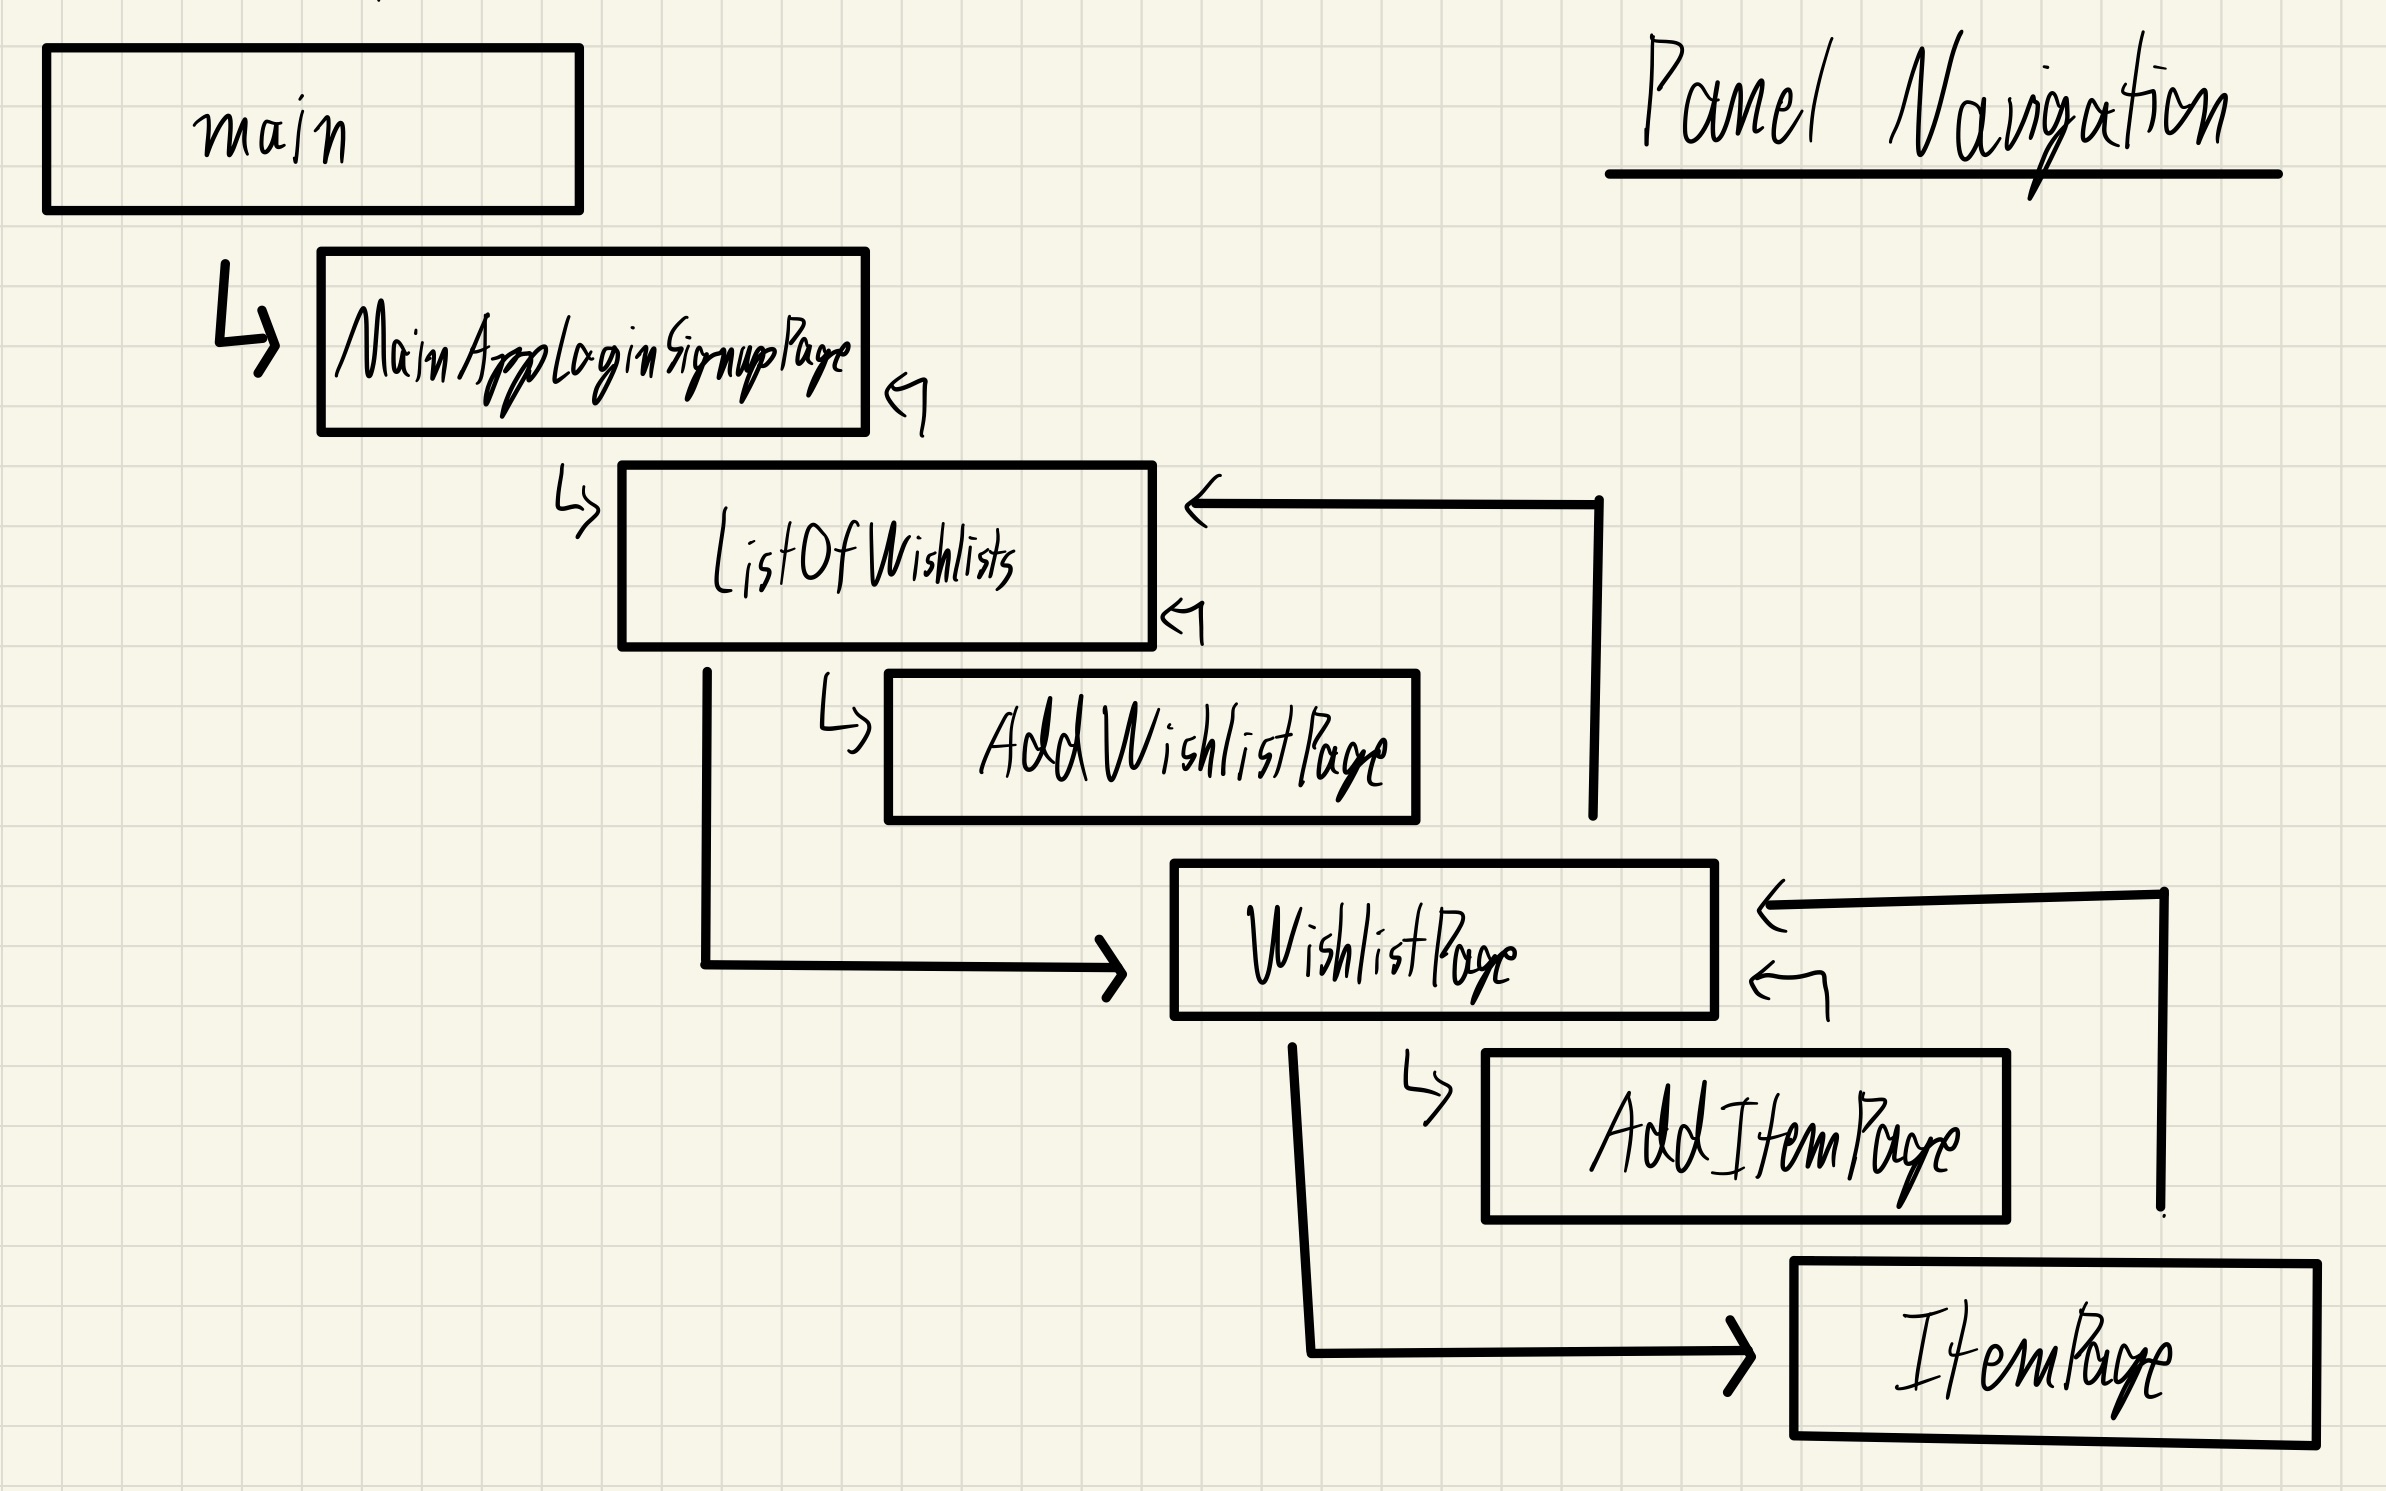 Panel Navigation
main
MainAppLoginSignupPage
ListOfWishlists
AddWishlistPage
WishlistPage
AddItemPage
ItemPage